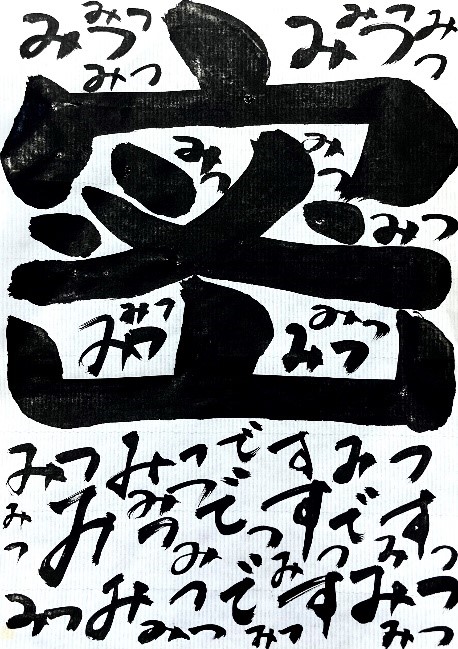 みつ
みつ
みつ
みつ
みつ
みつ
密
みつ
みつ
みつ
みつ
みつ
みつ
みつ
みつ みつです みつ
みつ みつです です
みつ
みつ
みつ
みつ
みつ みつです みつ
みつ
みつ
みつ